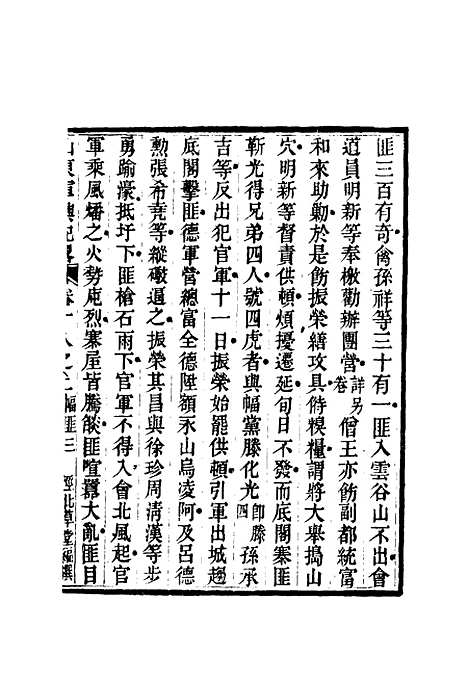 匪三百有奇禽孫祥等三十有一匪入雲谷山不出會
道員明新等奉檄勸辦團營詳另卷僧王亦飭副都統富
和來助勦於是飭振榮繕攻具偫糗糧謂將大舉搗山
穴明新等督責供頓煩擾遷延旬日不發而底閣寨匪
靳光得兄弟四人號四虎者與幅黨滕化光即滕四孫承
吉等反出犯官軍十一日振榮始罷供頓引軍出城趨
底閣擊匪德軍營總富全德陞額永山烏凌阿及呂德
勲張希莞等縱礮遏之振榮其昌與徐珍周淸漢等步
勇踰濠抵圩下匪槍石雨下官軍不得入會北風起官
軍乘風燔之火勢庉烈寨屋皆騰燄匪喧囂大亂匪目
山東軍興紀畧 卷十八之 幅匪三